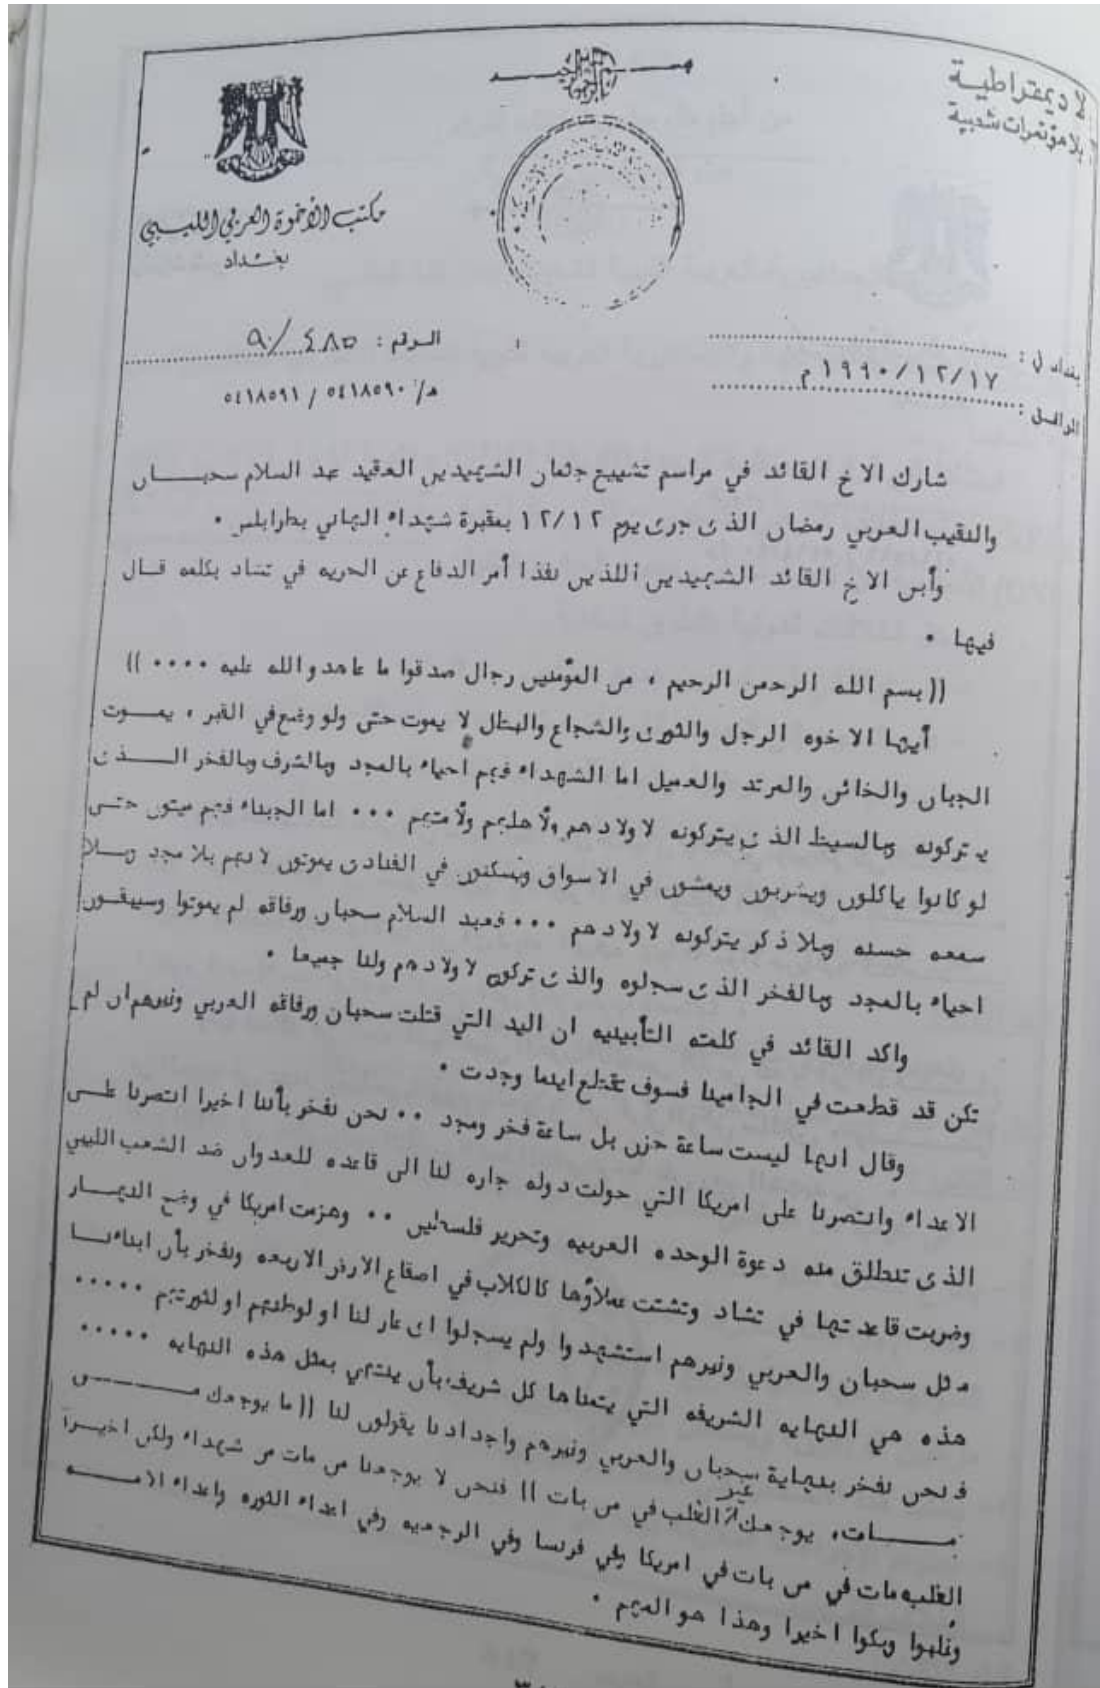 لا ديمقراطية
بلا مؤتمرات شعبية
بسم الله الرحمن الرحيم
مكتب الأخوة العربي الليبي
بغداد
بغداد في :
١٩٩٠/١٢/١٧ م
الموافق :
الرقم : ٤٨٥/٩٠
ھ/ ٥٤١٨٥٩٠ / ٥٤١٨٥٩١
شارك الاخ القائد في مراسم تشييع جثمان الشهيدين العقيد عبد السلام سحبان
والنقيب العربي رمضان الذى جرى يوم ١٢/١٢ بمقبرة شهداء الهاني بطرابلس .
وأبن الاخ القائد الشهيدين اللذين نفذا أمر الدفاع عن الحريه في تشاد بكلمه قال
فيها .
(( بسم الله الرحمن الرحيم ، من المؤمنين رجال صدقوا ما عاهدوالله عليه .... ))
أيها الاخوه الرجل والثورى والشجاع والبطل لا يموت حتى ولو وضع في القبر ، يموت
الجبان والخائن والمرتد والعميل اما الشهداء فهم احياء بالمجد وبالشرف وبالفخر الذى
يتركونه وبالسيط الذى يتركونه لاولادهم ولأهليهم ولأمتهم ... اما الجبناء فهم ميتون حتى
لو كانوا ياكلون ويشربون ويمشون في الاسواق ويسكنون في الفنادق يموتون لانهم بلا مجد وبلا
سمعه حسنه وبلا ذكر يتركونه لاولادهم ... فعبد السلام سحبان ورفاقه لم يموتوا وسيبقون
احياء بالمجد وبالفخر الذى سجلوه والذى تركون لاولادهم ولنا جميعا .
واكد القائد في كلمته التأبينيه ان اليد التي قتلت سحبان ورفاقه العربي وغيرهم ان لم
تكن قد قطعت في انجامينا فسوف تقتلع اينما وجدت .
وقال انها ليست ساعة حزن بل ساعة فخر ومجد .. نحن نفخر بأننا اخيرا انتصرنا على
الاعداء وانتصرنا على امريكا التي حولت دوله جاره لنا الى قاعده للعدوان ضد الشعب الليبي
الذى تنطلق منه دعوة الوحده العربيه وتحرير فلسطين .. وهزمت امريكا في وضح النهار
وضربت قاعدتها في تشاد وتشتت عملاؤها كالكلاب في اصقاع الارض الاربعه ونفخر بأن ابناءنا
مثل سحبان والعربي وغيرهم استشهدوا ولم يسجلوا اى عار لنا او لوطنهم او لثورتهم .....
هذه هي النهايه الشريفه التي يتمناها كل شريف بأن ينتهي بمثل هذه النهايه .....
فنحن نفخر بنهاية سحبان والعربي وغيرهم واجدادنا يقولون لنا (( ما يوجعك من
مات، يوجعك غير الغلب في من بات )) فنحن لا يوجعنا من مات من شهداء ولكن اخيرا
الغلب مات في من بات في امريكا وفي فرنسا وفي الرجعيه وفي اعداء الثوره واعداء الامه
وغلبوا وبكوا اخيرا وهذا هو المهم .